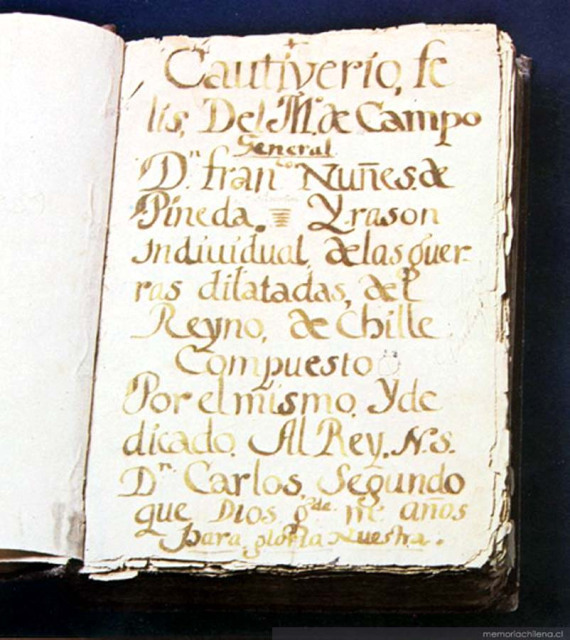 Cautiverio, fe
lis, Del M.e de Campo
General
D.n fran.co Nuñes de
Pineda. Y rason
Indiuidual, de las guer-
ras dilatadas, del
Reyno, de Chille
Compuesto
Por el mismo, Y de
dicado, Al Rey. N. S.
D.n Carlos, Segundo
que Dios g.de m.e años
Para gloria Nuestra.
memoriachilena.cl